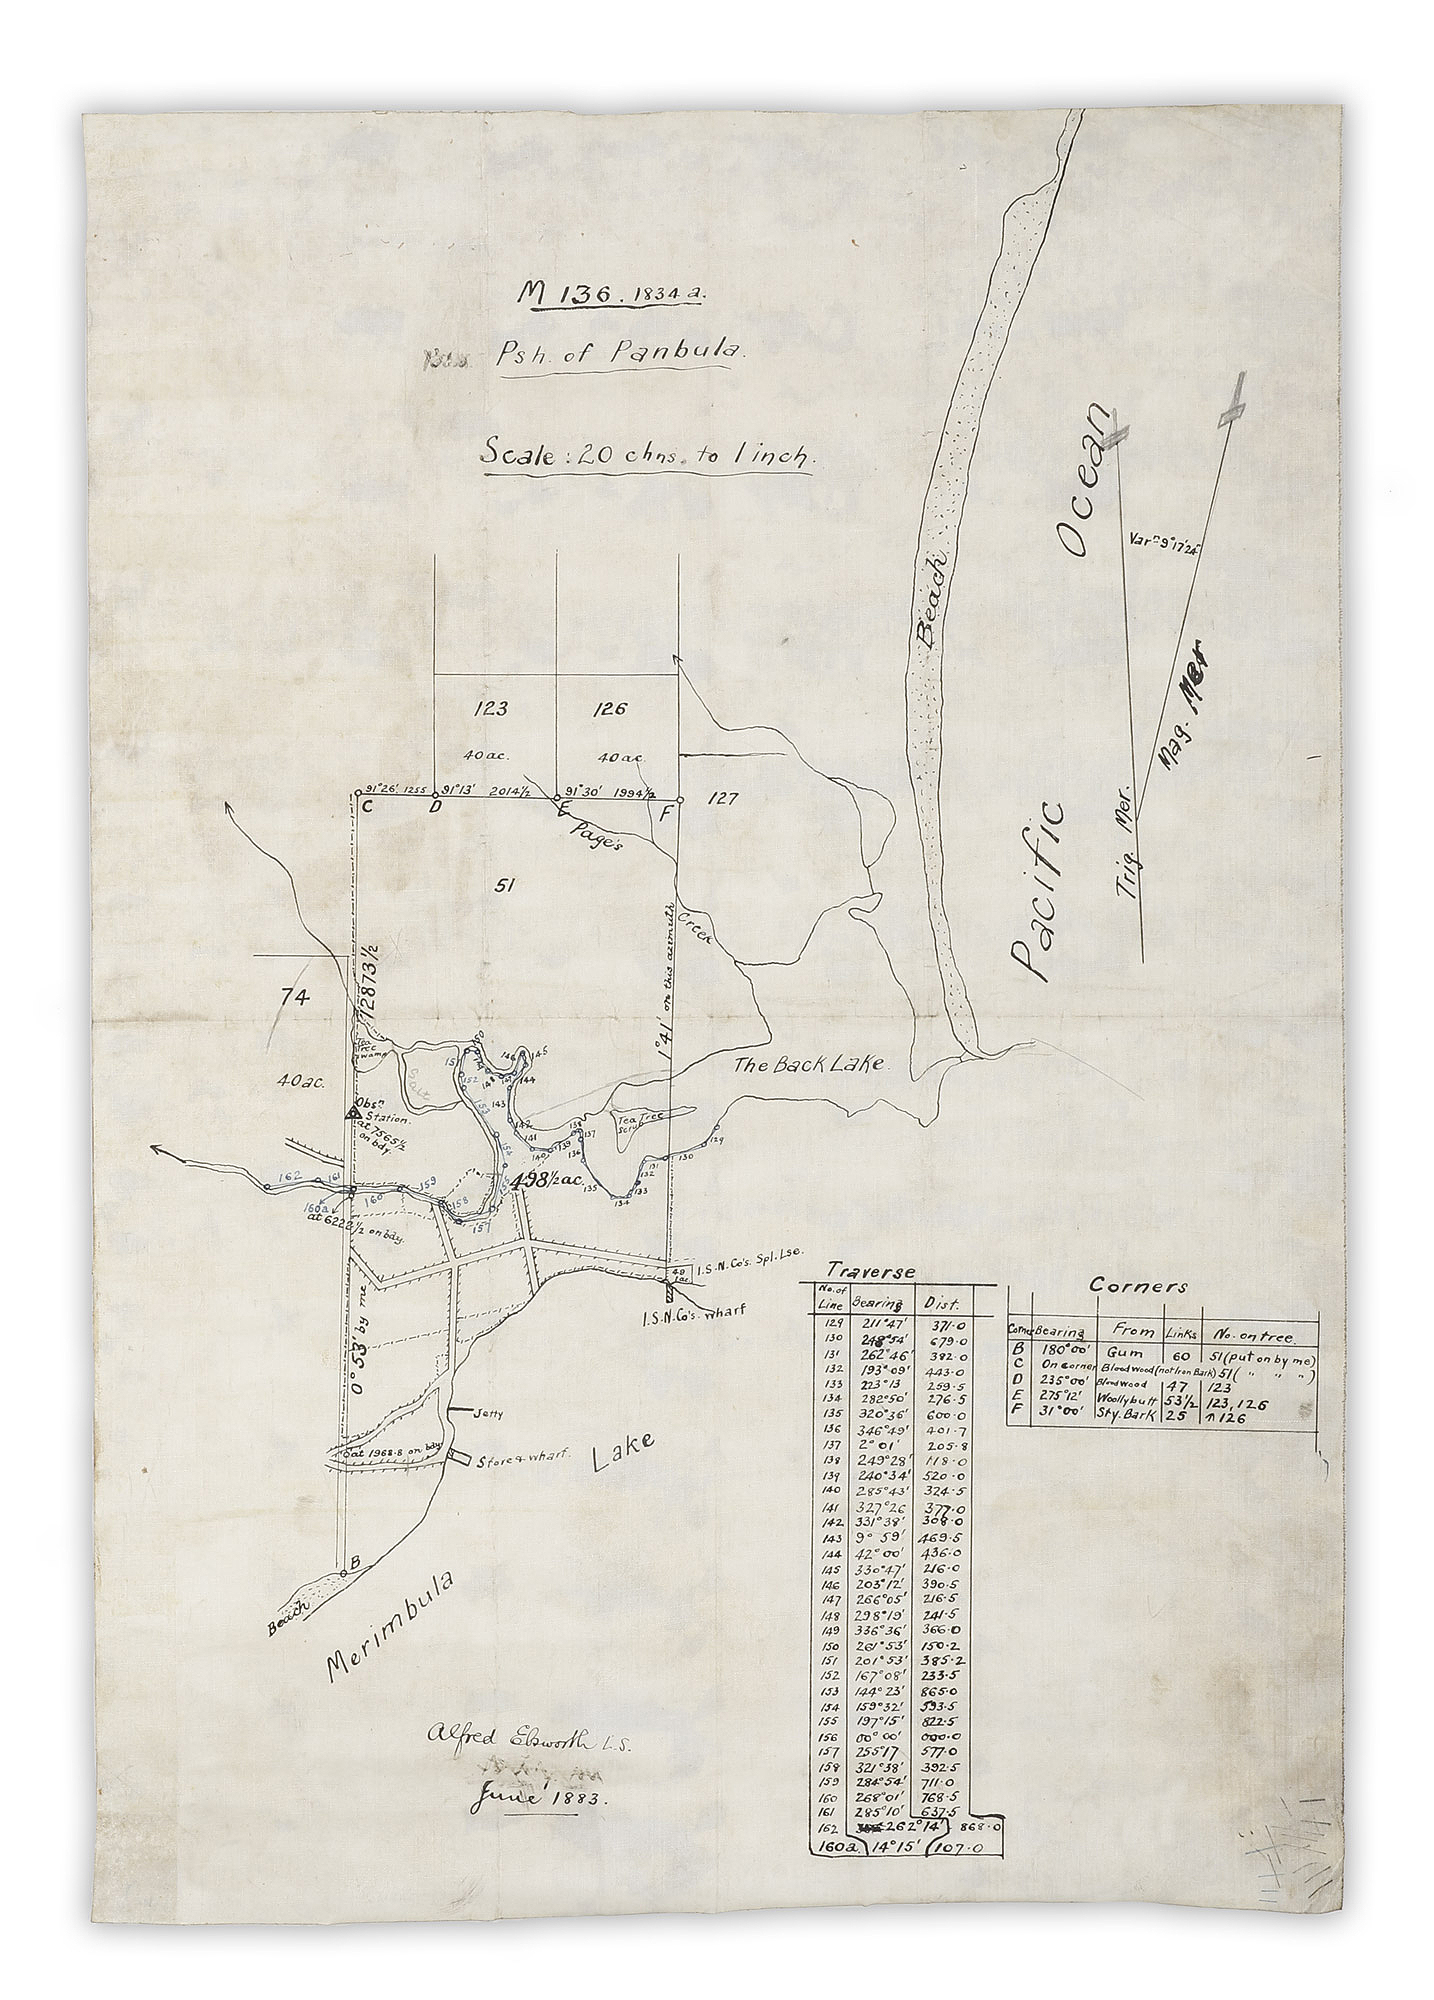 M 136. 1834 a.
Psh. of Panbula.
Scale: 20 chns. to 1 inch.
Beach
Pacific Ocean
Varⁿ 9°17'24"
Trig. Mer.
Mag. Mer
123
40 ac.
126
40 ac.
127
91°26' 1255
91°13' 2014½
91°30' 1994½
C
D
E
F
Page's
Creek
51
12873½
1°41' on this azimuth
74
40 ac.
Tea Tree Swamp
Salt
Obsⁿ Station.
at 7565½
on bdy.
The Back Lake.
Tea Tree Scrub
498½ ac.
162
161
160a
160
159
158
157
154
153
152
151
150
149
148
147
146
145
144
143
142
141
140
139
138
137
136
135
134
133
132
131
130
129
at 6228½ on bdy.
0°53' by me
I.S.N.Co's. Spl. Lse.
49
1ac
I.S.N.Co's. wharf
Jetty
at 1968.8 on bdy
Store & wharf.
Merimbula Lake
B
Beach
Alfred Ebsworth L.S.
June 1883.
Traverse
No. of Line Bearing Dist.
129 211°47' 371.0
130 248°54' 679.0
131 262°46' 382.0
132 193°09' 443.0
133 223°13 259.5
134 282°50' 276.5
135 320°36' 600.0
136 346°49' 401.7
137 2°01' 205.8
138 249°28' 118.0
139 240°34' 520.0
140 285°43' 324.5
141 327°26 377.0
142 331°38' 308.0
143 9°59' 469.5
144 42°00' 436.0
145 330°47' 216.0
146 203°12' 390.5
147 266°05' 216.5
148 298°19' 241.5
149 336°36' 366.0
150 261°53' 150.2
151 201°53' 385.2
152 167°08' 233.5
153 144°23' 865.0
154 159°32' 593.5
155 197°15' 822.5
156 00°00' 000.0
157 255°17 577.0
158 321°38' 392.5
159 284°54' 711.0
160 268°01' 768.5
161 285°10' 637.5
162 262°14' 868.0
160a 14°15' 107.0
Corners
Corner Bearing From Links No. on tree.
B 180°00' Gum 60 51 (put on by me)
C On corner Bloodwood (not Iron Bark) 51 ( " " " )
D 235°00' Bloodwood 47 123
E 275°12' Woollybutt 53½ 123, 126
F 31°00' Sty. Bark 25 ↑126